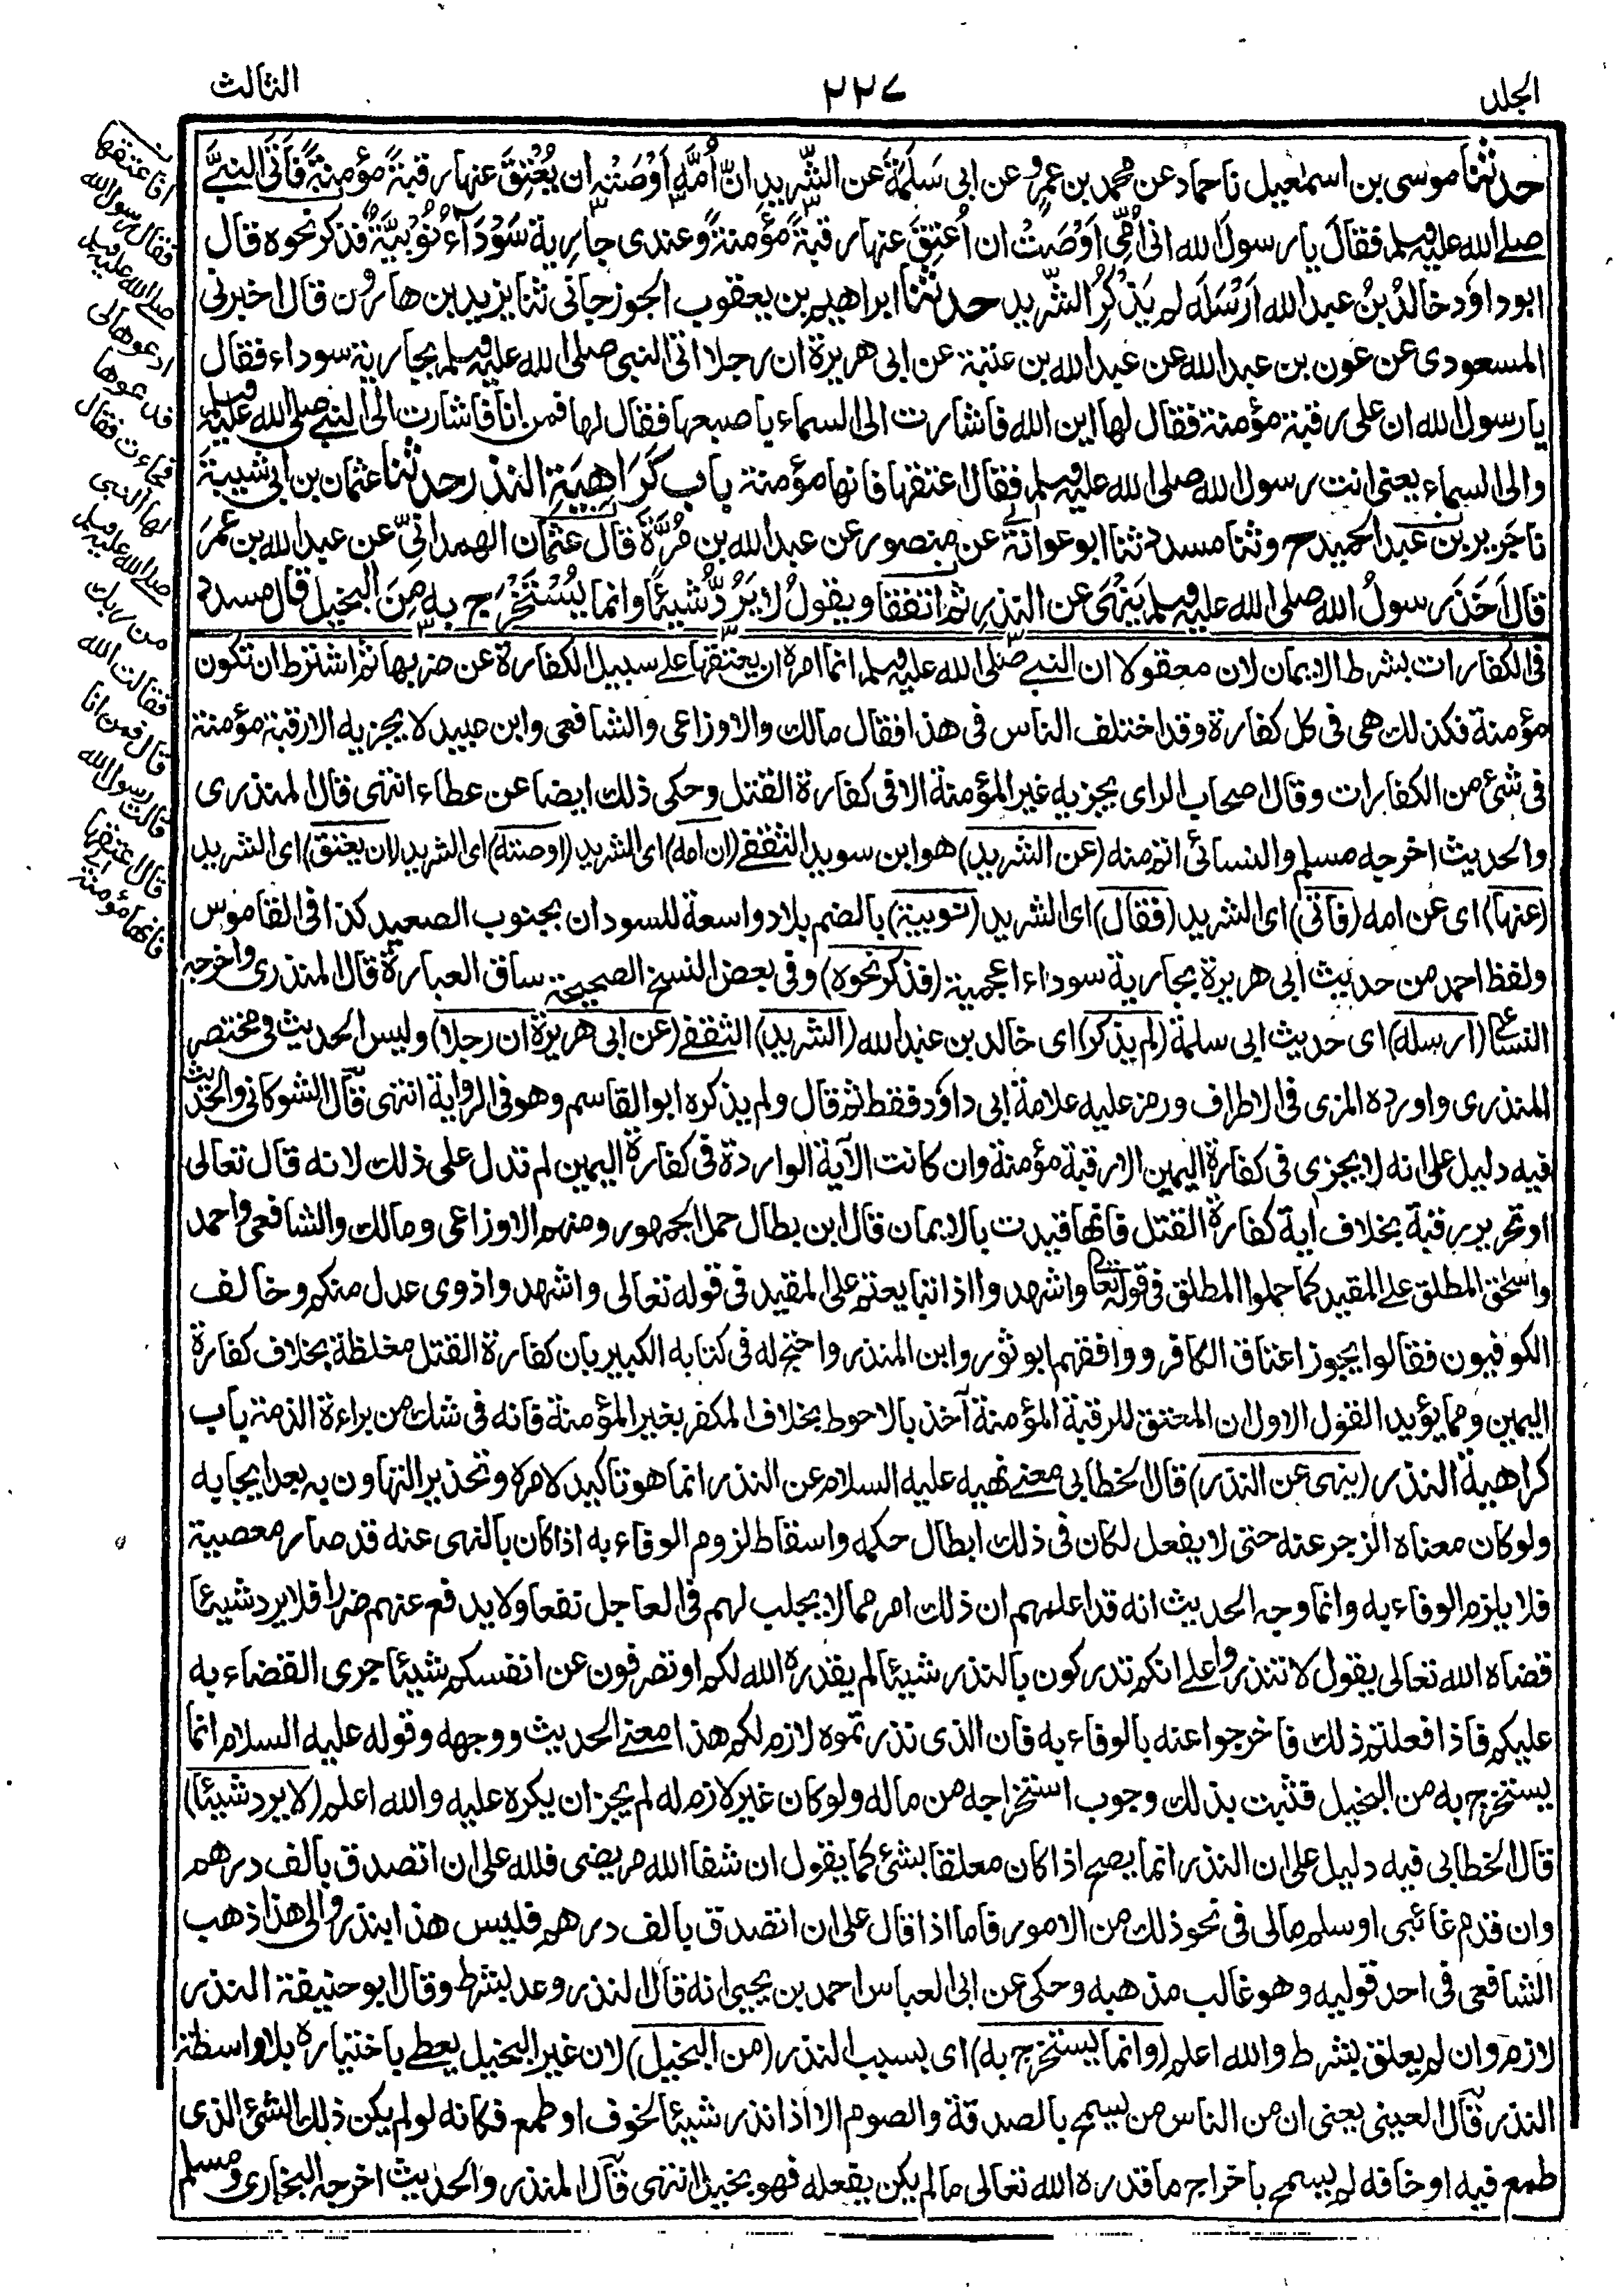 الجلد
٢٢٧
الثالث
حدثنا موسى بن اسمعيل نا حماد عن محمد بن عمرو عن ابى سَلَمَةَ عن الشَّرِيدِ انّ أُمَّه أَوْصَتْهُ ان يُعْتِقَ عنها رقبةً مؤمنةً فَأَتَى النبىَّ
صلے الله عليه وسلم فقالَ يا رسولَ الله انّ أُمِّى أَوْصَتْ ان أُعْتِقَ عنها رقبةً مؤمنةً وعندى جارِيةٌ سَوْدَآءُ نُوْبِيَّةٌ فذكر نحوه قال
ابو داؤد خالدُ بنُ عبد الله اَرْسَلَه لم يَذْكُرِ الشّريد حدثنا ابراهيم بن يعقوب الجوزجانى ثنا يزيد بن هارُون قال اخبرنى
المسعودى عن عون بن عبد الله عن عبد الله بن عتبة عن ابى هريرة ان رجلا اتى النبى صلى الله عليه وسلم بجارية سوداء فقال
يا رسول الله ان على رقبة مؤمنة فقال لها اين الله فاشارت الى السماء باصبعها فقال لها فمن انا فاشارت الى النبے صلى الله عليه وسلم
والى السماء يعنى انت رسول الله صلى الله عليه وسلم فقال اعتقها فانها مؤمنة باب كَرَاهِيَةِ النذر حدثنا عثمان بن ابى شيبةَ
نا جرير بن عبد الحميد ح وثنا مسدد ثنا ابو عوانة عن منصور عن عبد الله بن مُرَّةَ قال عثمان الهمدانىّ عن عبد الله بن عمرَ
قال اَخَذَ رسولُ الله صلى الله عليه وسلم يَنْهَى عن النذر ثم اتفقا ويقولُ لا يَرُدُّ شيئًا وانما يُسْتَخْرَج به مِنَ البخيل قال مسدد
فى الكفارات بشرط الايمان لان معقولا ان النبے صلى الله عليه وسلم انما امره ان يعتقها علے سبيل الكفارة عن ضربها ثم اشترط ان تكون
مؤمنة فكذلك هى فى كل كفارة وقد اختلف الناس فى هذا فقال مالك والاوزاعى والشافعى وابن عبيد لا يجزيه الا رقبة مؤمنة
فى شئ من الكفارات وقال اصحاب الراى يجزيه غير المؤمنة الا فى كفارة القتل وحكى ذلك ايضا عن عطاء انتهى قال المنذرى
والحديث اخرجه مسلم والنسائى اتم منه (عن الشريد) هو ابن سويد الثقفے (ان امه) اى الشريد (اوصته) اى الشريد (ان يعتق) اى الشريد
(عنها) اى عن امه (فاتى) اى الشريد (فقال) اى الشريد (نوبية) بالضم بلاد واسعة للسودان بجنوب الصعيد كذا فى القاموس
ولفظ احمد من حديث ابى هريرة بجارية سوداء اعجمية (فذكر نحوه) وفى بعض النسخ الصحيحة ساق العبارة قال المنذرى واخرجه
النسائى (ارسله) اى حديث ابى سلمة (لم يذكر) اى خالد بن عبد الله (الشريد) الثقفے (عن ابى هريرة ان رجلا) وليس الحديث فى مختصر
المنذرى واورده المزى فى الاطراف ورمز عليه علامة ابى داؤد فقط ثم قال ولم يذكره ابو القاسم وهو فى الرواية انتهى قال الشوكانى والحديث
فيه دليل على انه لا يجزى فى كفارة اليمين الا رقبة مؤمنة وان كانت الآية الواردة فى كفارة اليمين لم تدل على ذلك لانه قال تعالى
او تحرير رقبة بخلاف اية كفارة القتل فانها قيدت بالايمان قال ابن بطال حمل الجمهور ومنهم الاوزاعى ومالك والشافعى واحمد
واسحٰق المطلق علے المقيد كما حملوا المطلق فى قوله تعالى واشهدوا اذا تبايعتم على المقيد فى قوله تعالى واشهدوا ذوى عدل منكم وخالف
الكوفيون فقالوا يجوز اعتاق الكافر ووافقهم ابو ثور وابن المنذر واحتج له فى كتابه الكبير بان كفارة القتل مغلظة بخلاف كفارة
اليمين ومما يؤيد القول الاول ان المعتق للرقبة المؤمنة آخذ بالاحوط بخلاف المكفر بغير المؤمنة فانه فى شك من براءة الذمة باب
كراهية النذر (ينهى عن النذر) قال الخطابى معنے نهيه عليه السلام عن النذر انما هو تاكيد لامره وتحذير التهاون به بعد ايجابه
ولو كان معناه الزجر عنه حتى لا يفعل لكان فى ذلك ابطال حكمه واسقاط لزوم الوفاء به اذا كان بالنهى عنه قد صار معصية
فلا يلزم الوفاء به وانما وجه الحديث انه قد اعلمهم ان ذلك امر مما لا يجلب لهم فى العاجل نفعا ولا يدفع عنهم ضرا فلا يرد شيئا
قضاه الله تعالى يقول لا تنذروا علے انكم تدركون بالنذر شيئا لم يقدره الله لكم او تصرفون عن انفسكم شيئا جرى القضاء به
عليكم فاذا فعلتم ذلك فاخرجوا عنه بالوفاء به فان الذى نذرتموه لازم لكم هذا معنے الحديث ووجهه وقوله عليه السلام انما
يستخرج به من البخيل فثبت بذلك وجوب استخراجه من ماله ولو كان غير لازم له لم يجز ان يكره عليه والله اعلم (لا يرد شيئا)
قال الخطابى فيه دليل على ان النذر انما يصح اذا كان معلقا بشئ كما يقول ان شفا الله مريضى فلله على ان اتصدق بالف درهم
وان قدم غائبى او سلم مالى فى نحو ذلك من الامور فاما اذا قال على ان اتصدق بالف درهم فليس هذا بنذر والى هذا ذهب
الشافعى فى احد قوليه وهو غالب مذهبه وحكى عن ابى العباس احمد بن يحيى انه قال النذر وعد بشرط وقال ابو حنيفة النذر
لازم وان لم يعلق بشرط والله اعلم (وانما يستخرج به) اى بسبب النذر (من البخيل) لان غير البخيل يعطے باختياره بلا واسطة
النذر قال العينى يعنى ان من الناس من لا يسمح بالصدقة والصوم الا اذا نذر شيئا لخوف او طمع فكانه لو لم يكن ذلك الشئ الذى
طمع فيه او خافه لم يسمح باخراج ما قدره الله تعالى ما لم يكن يفعله فهو بخيل انتهى قال المنذرى والحديث اخرجه البخارى ومسلم
افاعتقها
فقال رسول الله
صلے الله عليه وسلم
ادعوها لى
فدعوها
فجاءت فقال
لها النبى
صلے الله عليه وسلم
من ربك
فقالت الله
قال فمن انا
قالت رسول الله
قال اعتقها
فانها مؤمنة